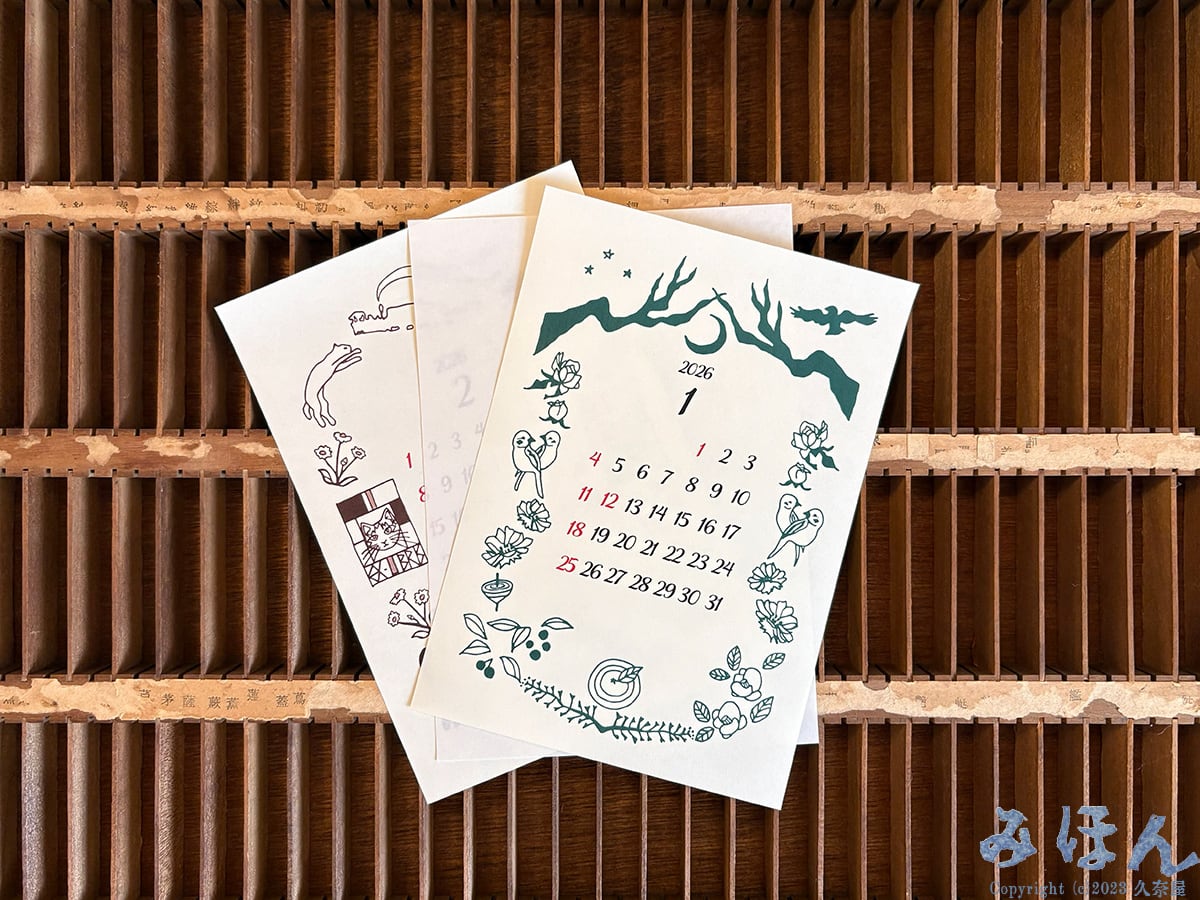 2026
1
1 2 3
4 5 6 7 8 9 10
11 12 13 14 15 16 17
18 19 20 21 22 23 24
25 26 27 28 29 30 31
2026
2
2 3 4
1
8
15
苣 茅 薩 蕨 藁 蓮 蓋 蔦
みほん
Copyright (c)2023 久奈屋